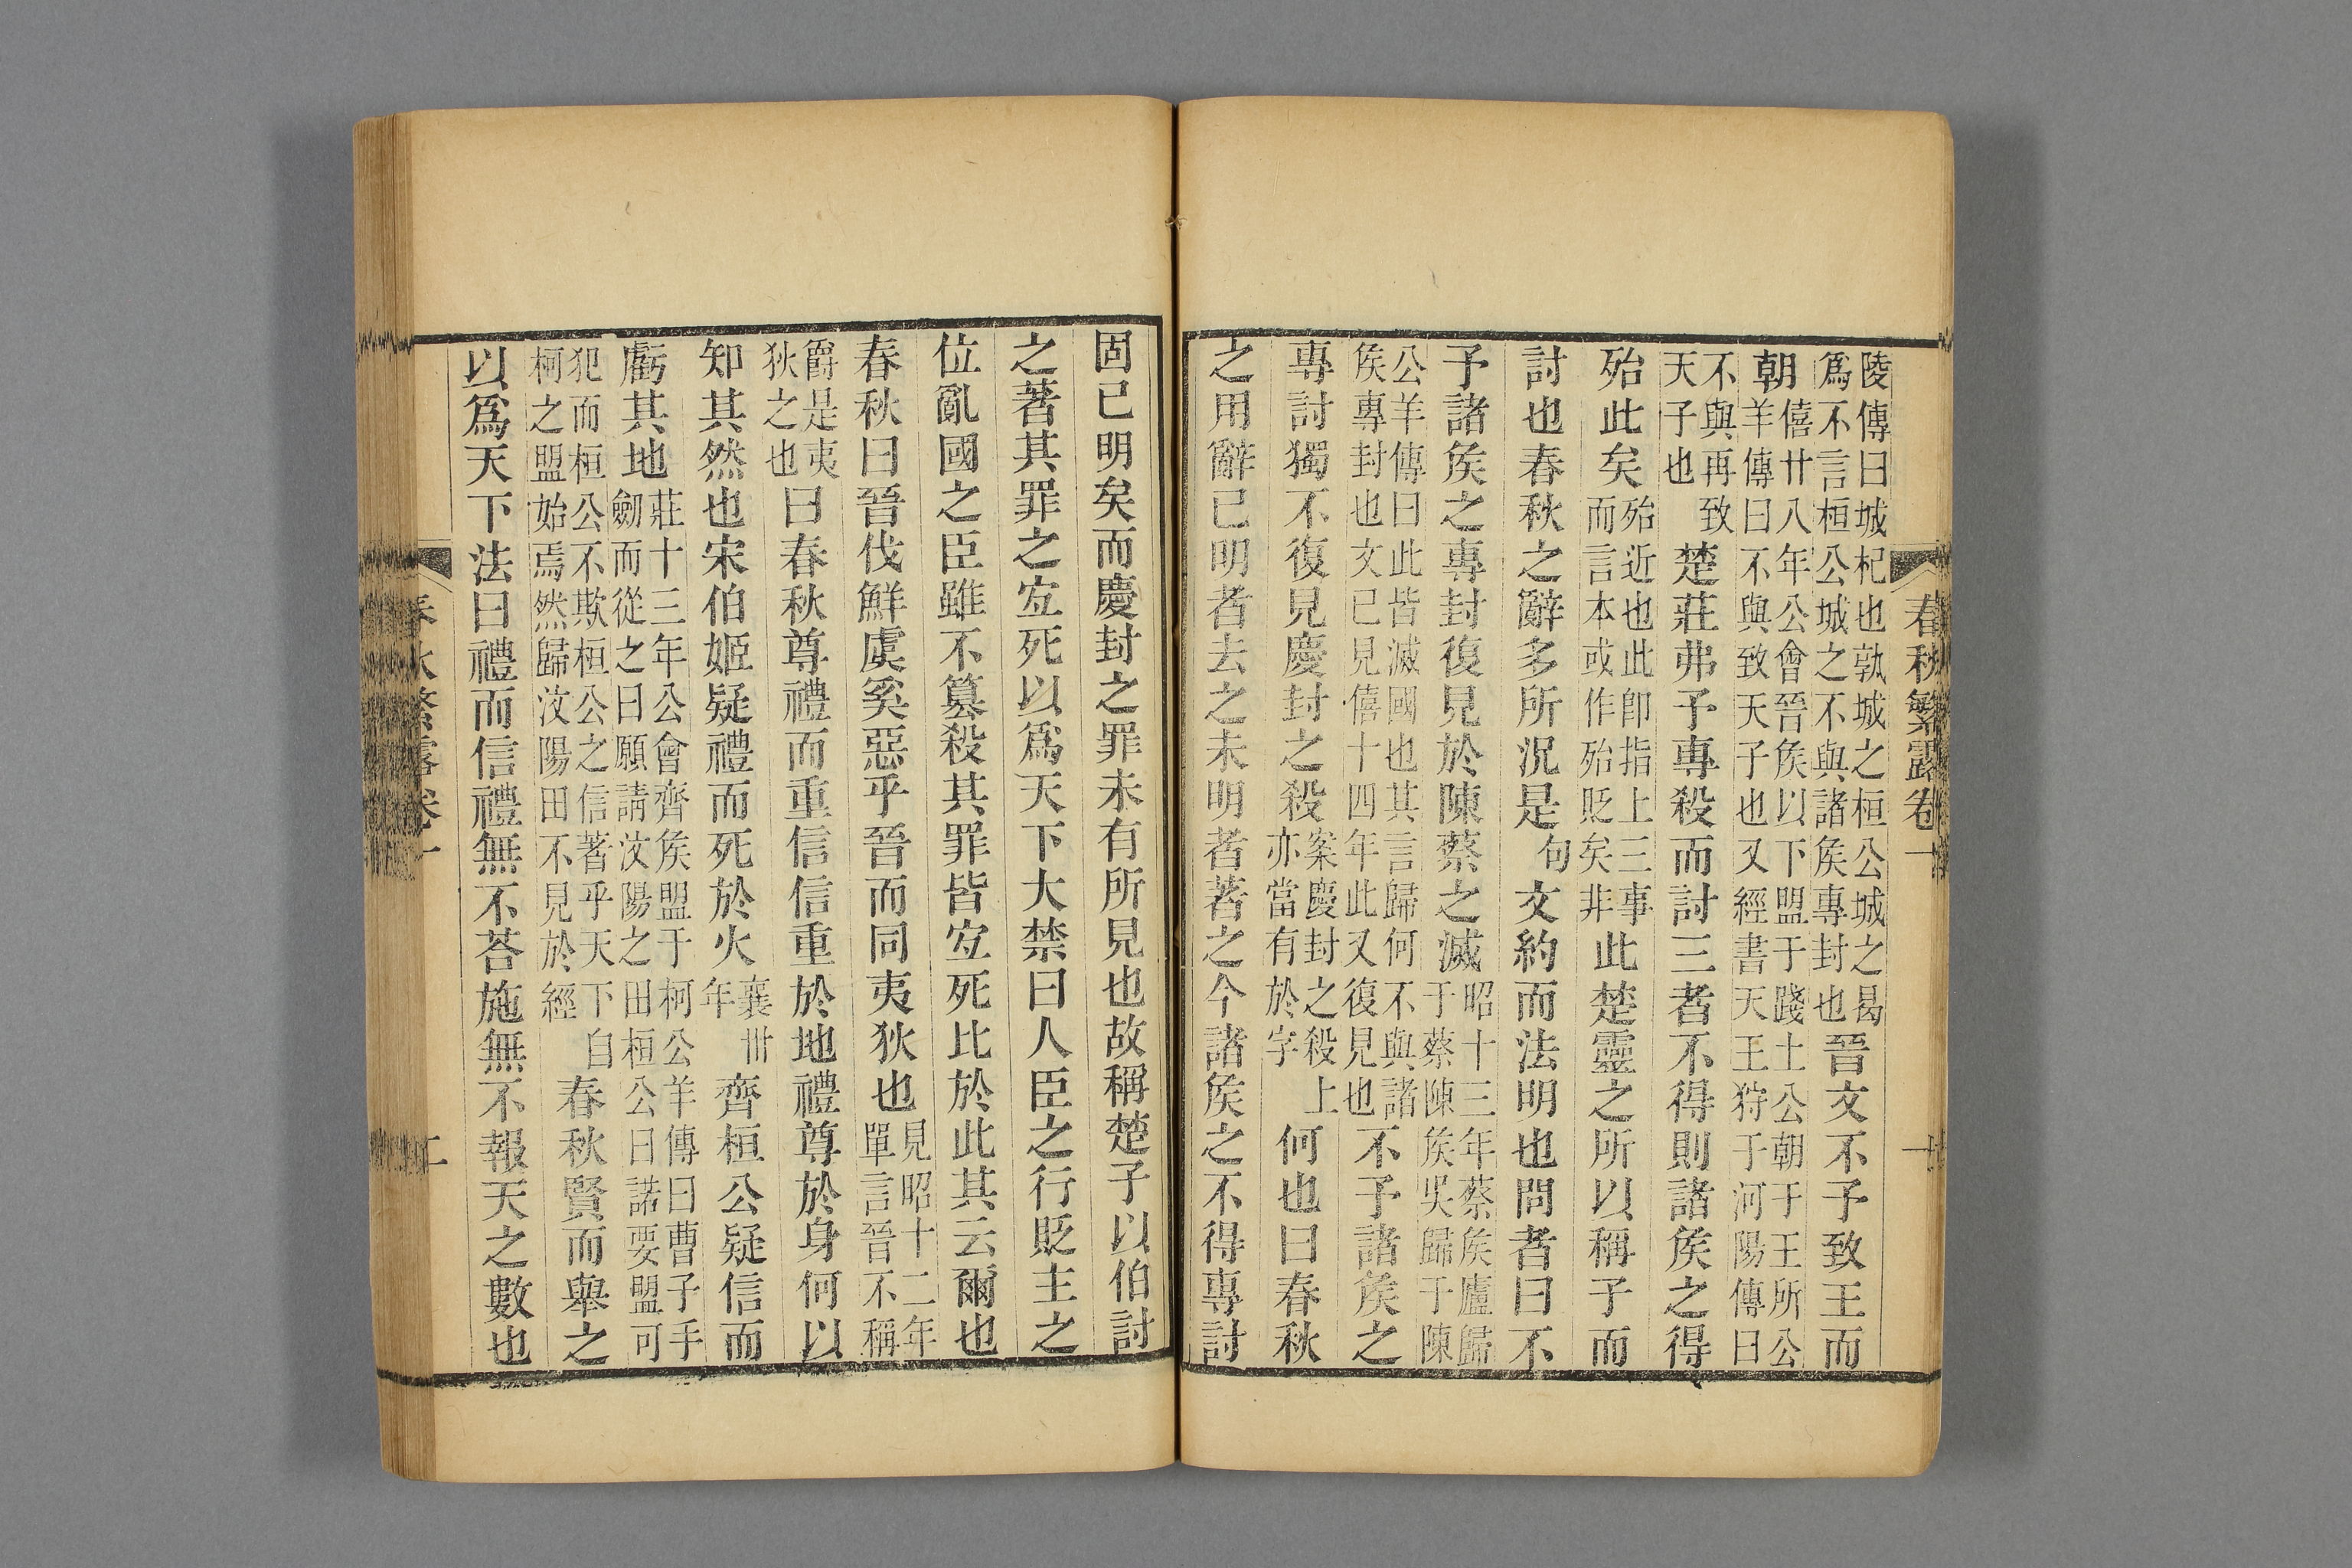 春秋繁露卷一
一
陵傳曰城杞也孰城之桓公城之曷
爲不言桓公城之不與諸矦專封也
晉文不予致王而
朝
僖廿八年公會晉矦以下盟于踐土公朝于王所公
羊傳曰不與致天子也又經書天王狩于河陽傳曰
不與再致
天子也
楚莊弗予專殺而討三者不得則諸矦之得
殆此矣
殆近也此卽指上三事
而言本或作殆貶矣非
此楚靈之所以稱子而
討也春秋之辭多所況是
句
文約而法明也問者曰不
予諸矦之專封復見於陳蔡之滅
昭十三年蔡矦廬歸
于蔡陳矦吳歸于陳
公羊傳曰此皆滅國也其言歸何不與諸
矦專封也文已見僖十四年此又復見也
不予諸矦之
專討獨不復見慶封之殺
案慶封之殺上
亦當有於字
何也曰春秋
之用辭已明者去之未明者著之今諸矦之不得專討
固已明矣而慶封之罪未有所見也故稱楚子以伯討
之著其罪之宐死以爲天下大禁曰人臣之行貶主之
位亂國之臣雖不篡殺其罪皆宐死比於此其云爾也
春秋曰晉伐鮮虞奚惡乎晉而同夷狄也
見昭十二年
單言晉不稱
爵是夷
狄之也
曰春秋尊禮而重信信重於地禮尊於身何以
知其然也宋伯姬疑禮而死於火
襄卅
年
齊桓公疑信而
虧其地
莊十三年公會齊矦盟于柯公羊傳曰曹子手
劒而從之曰願請汶陽之田桓公曰諾要盟可
犯而桓公不欺桓公之信著乎天下自
柯之盟始焉然歸汶陽田不見於經
春秋賢而舉之
以爲天下法曰禮而信禮無不荅施無不報天之數也
春秋繁露卷一